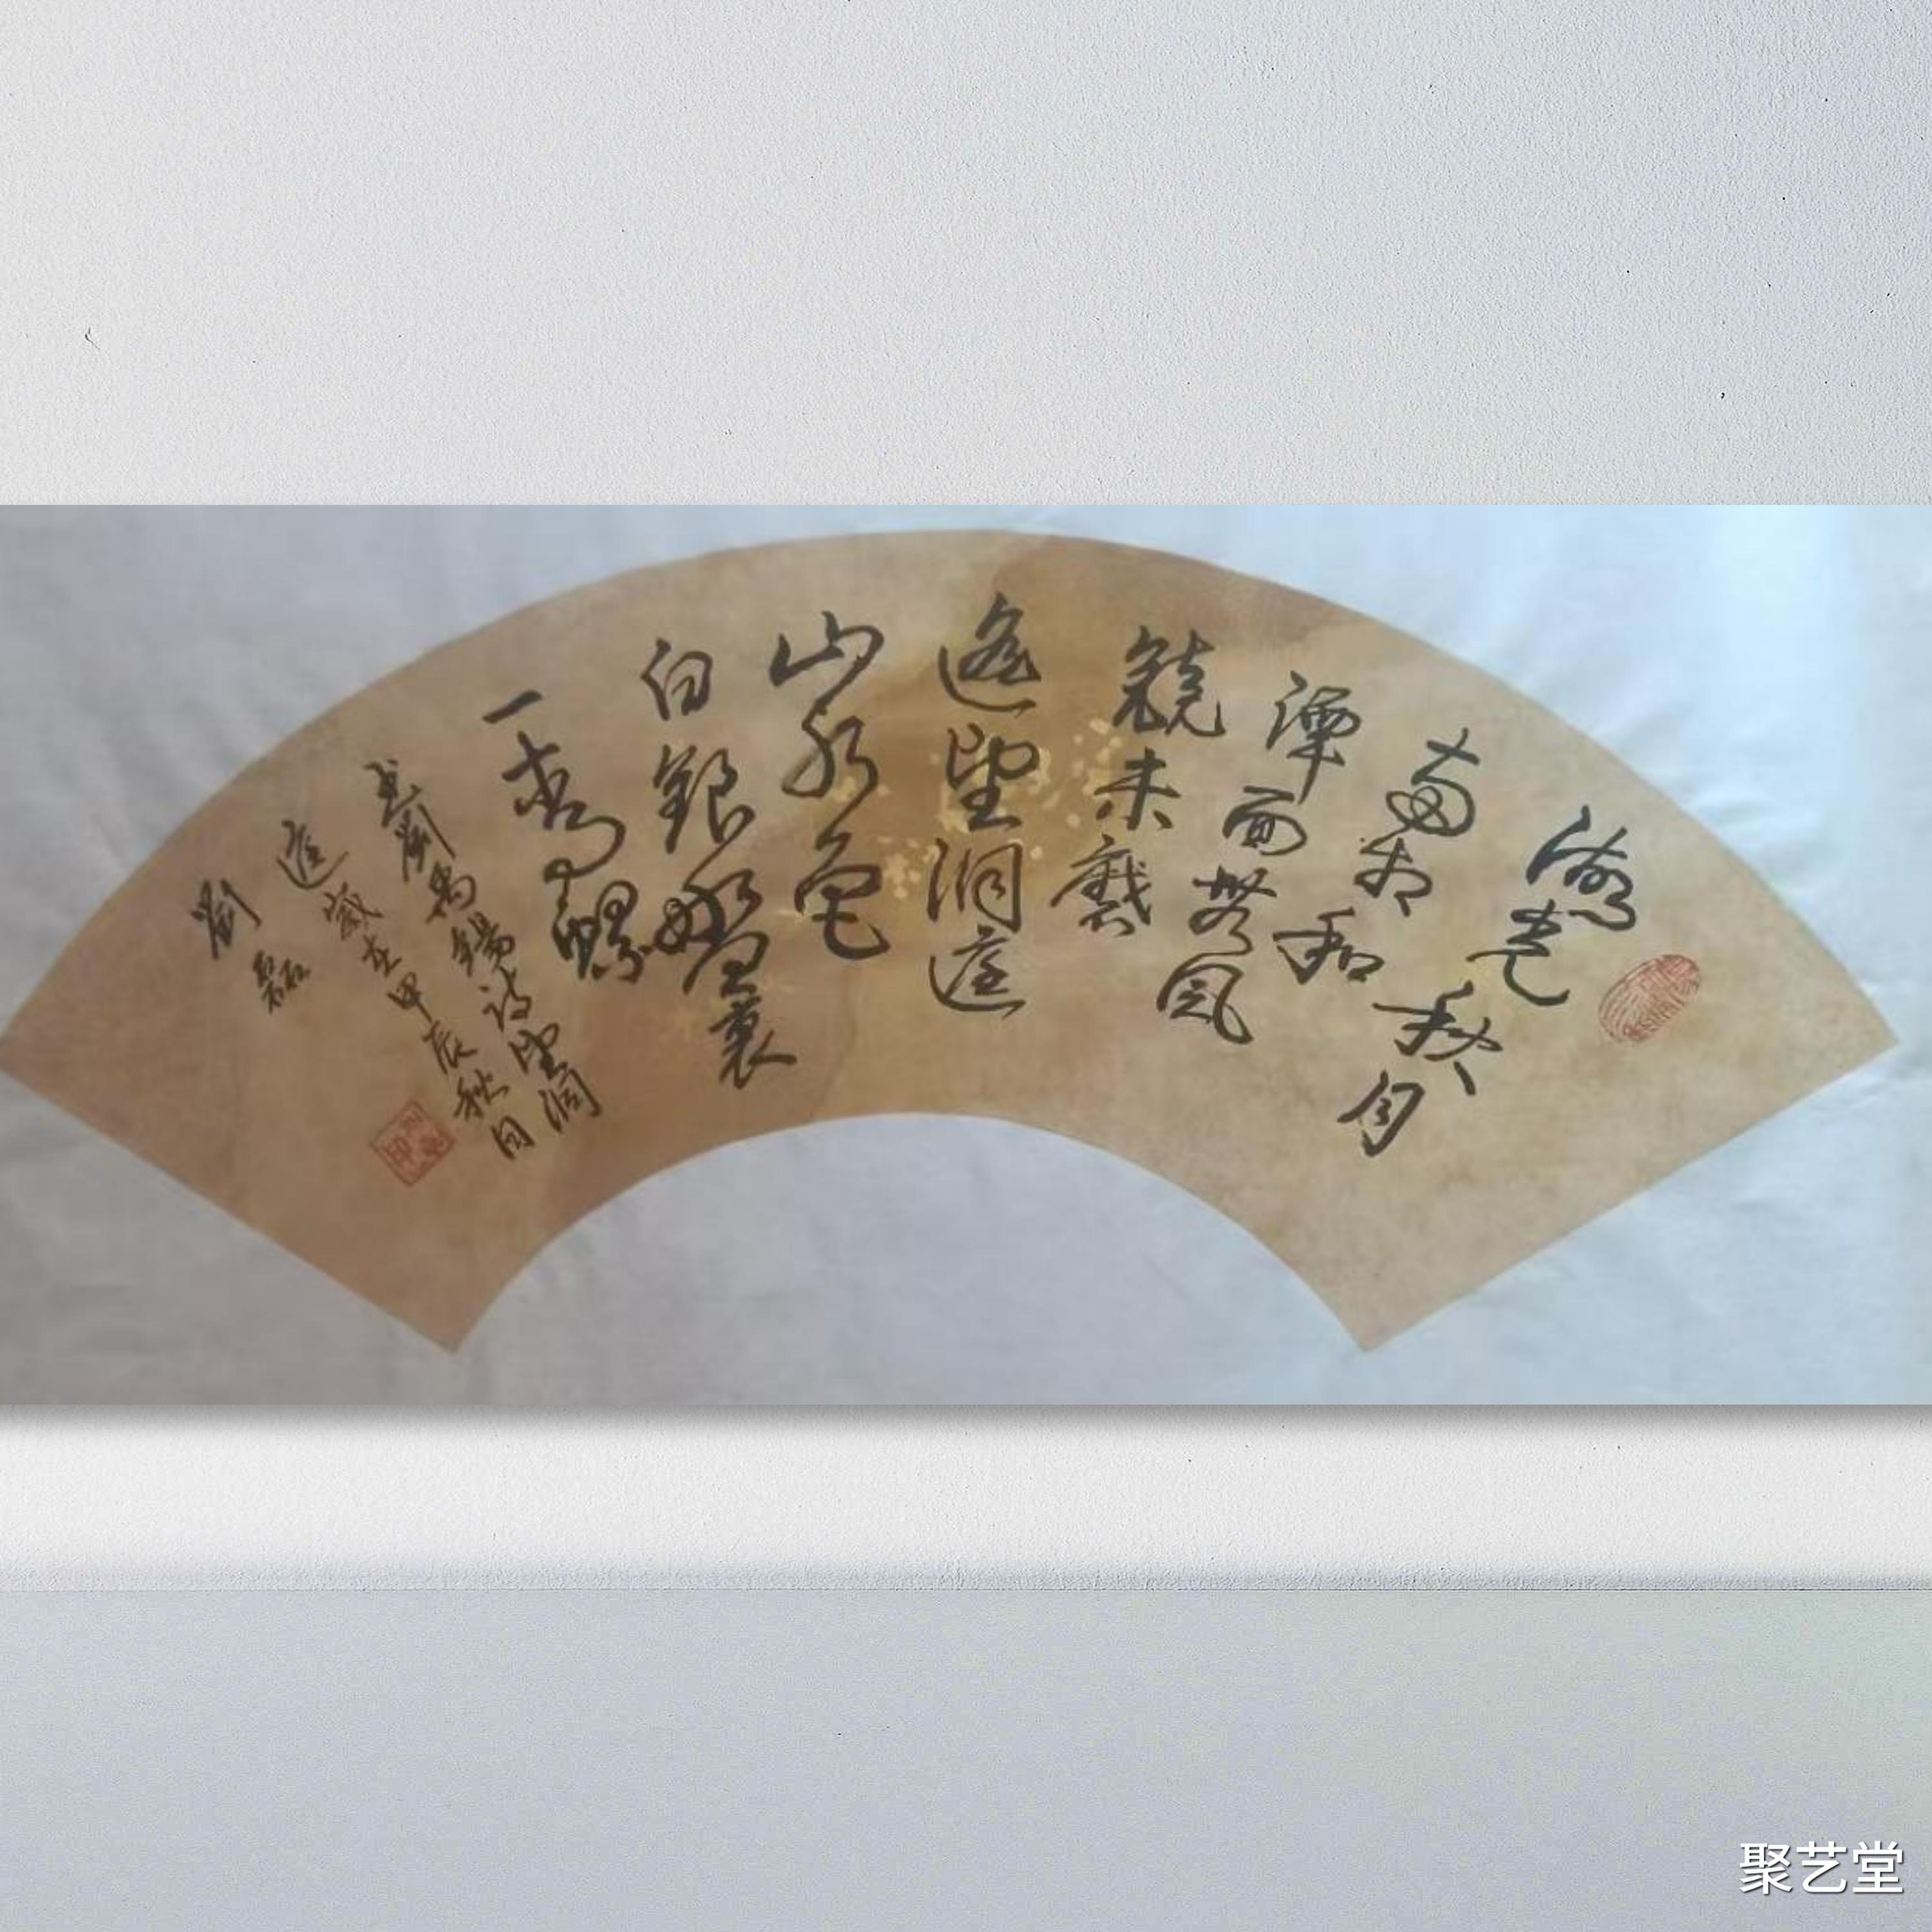 湖光秋月
兩相和
潭面無風
鏡未磨
遙望洞庭
山水色
白銀盤裏
一青螺
書劉禹錫詩望洞
庭歲在甲辰秋月
劉磊
聚艺堂